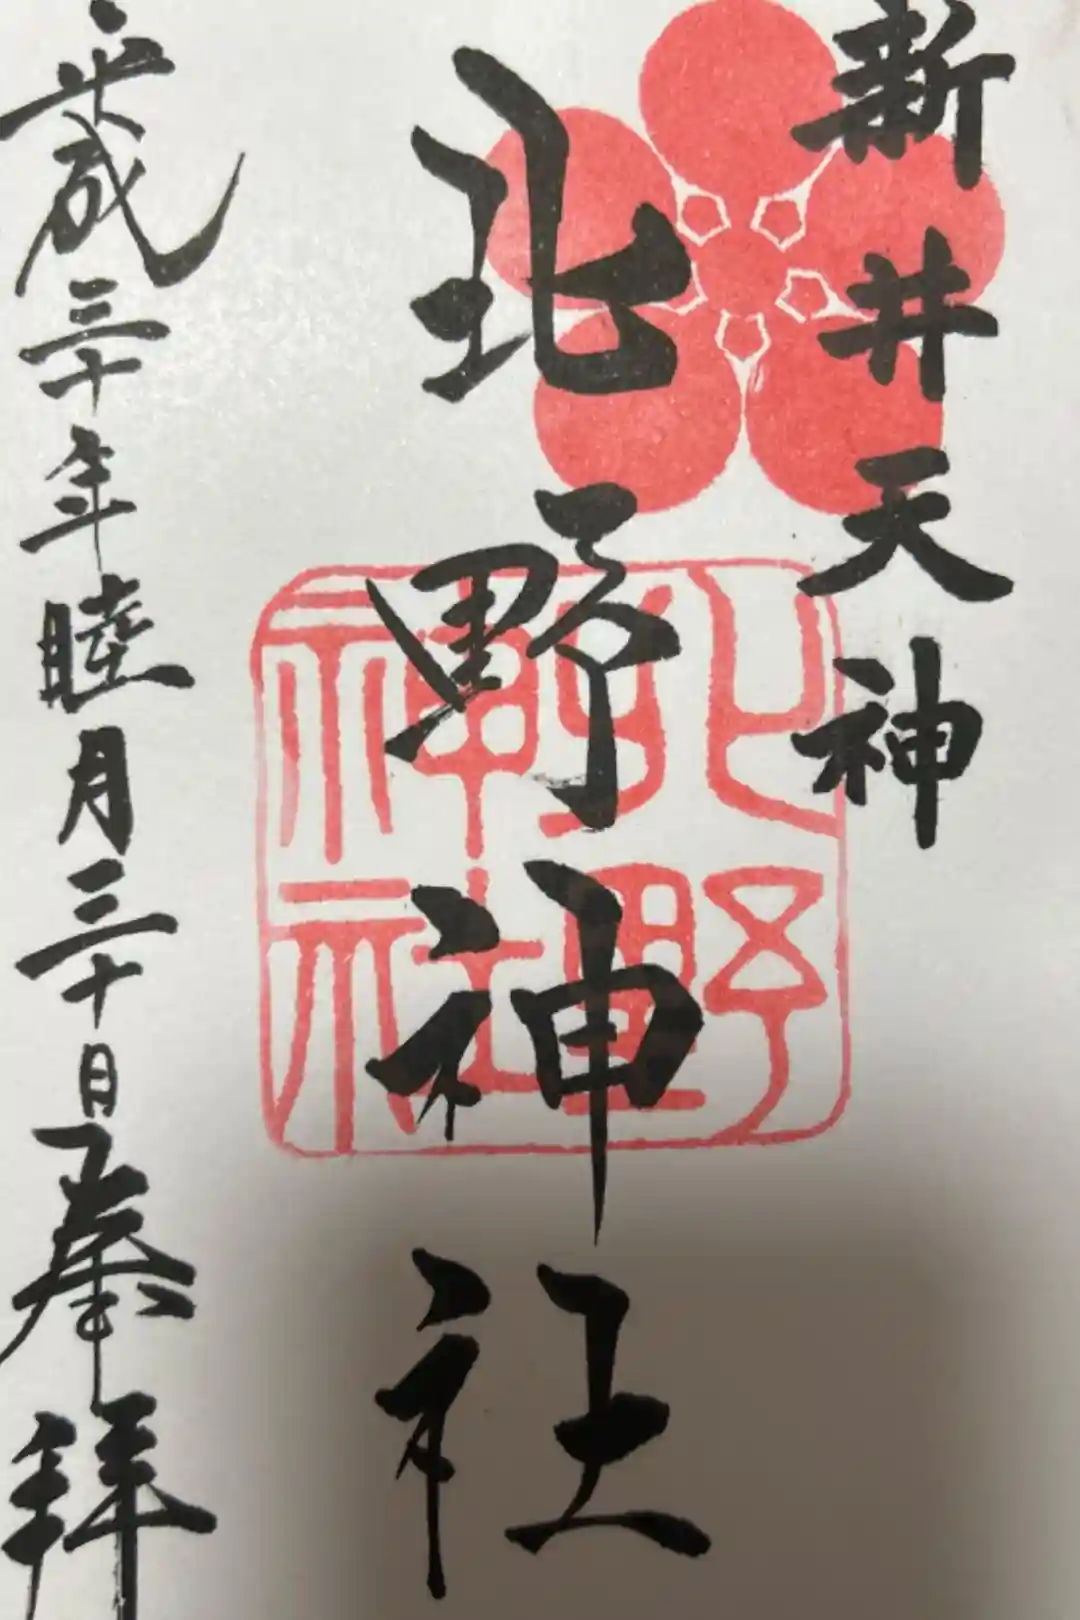 新井天神
北野神社
平成三十年睦月三十日奉拝
北野神社